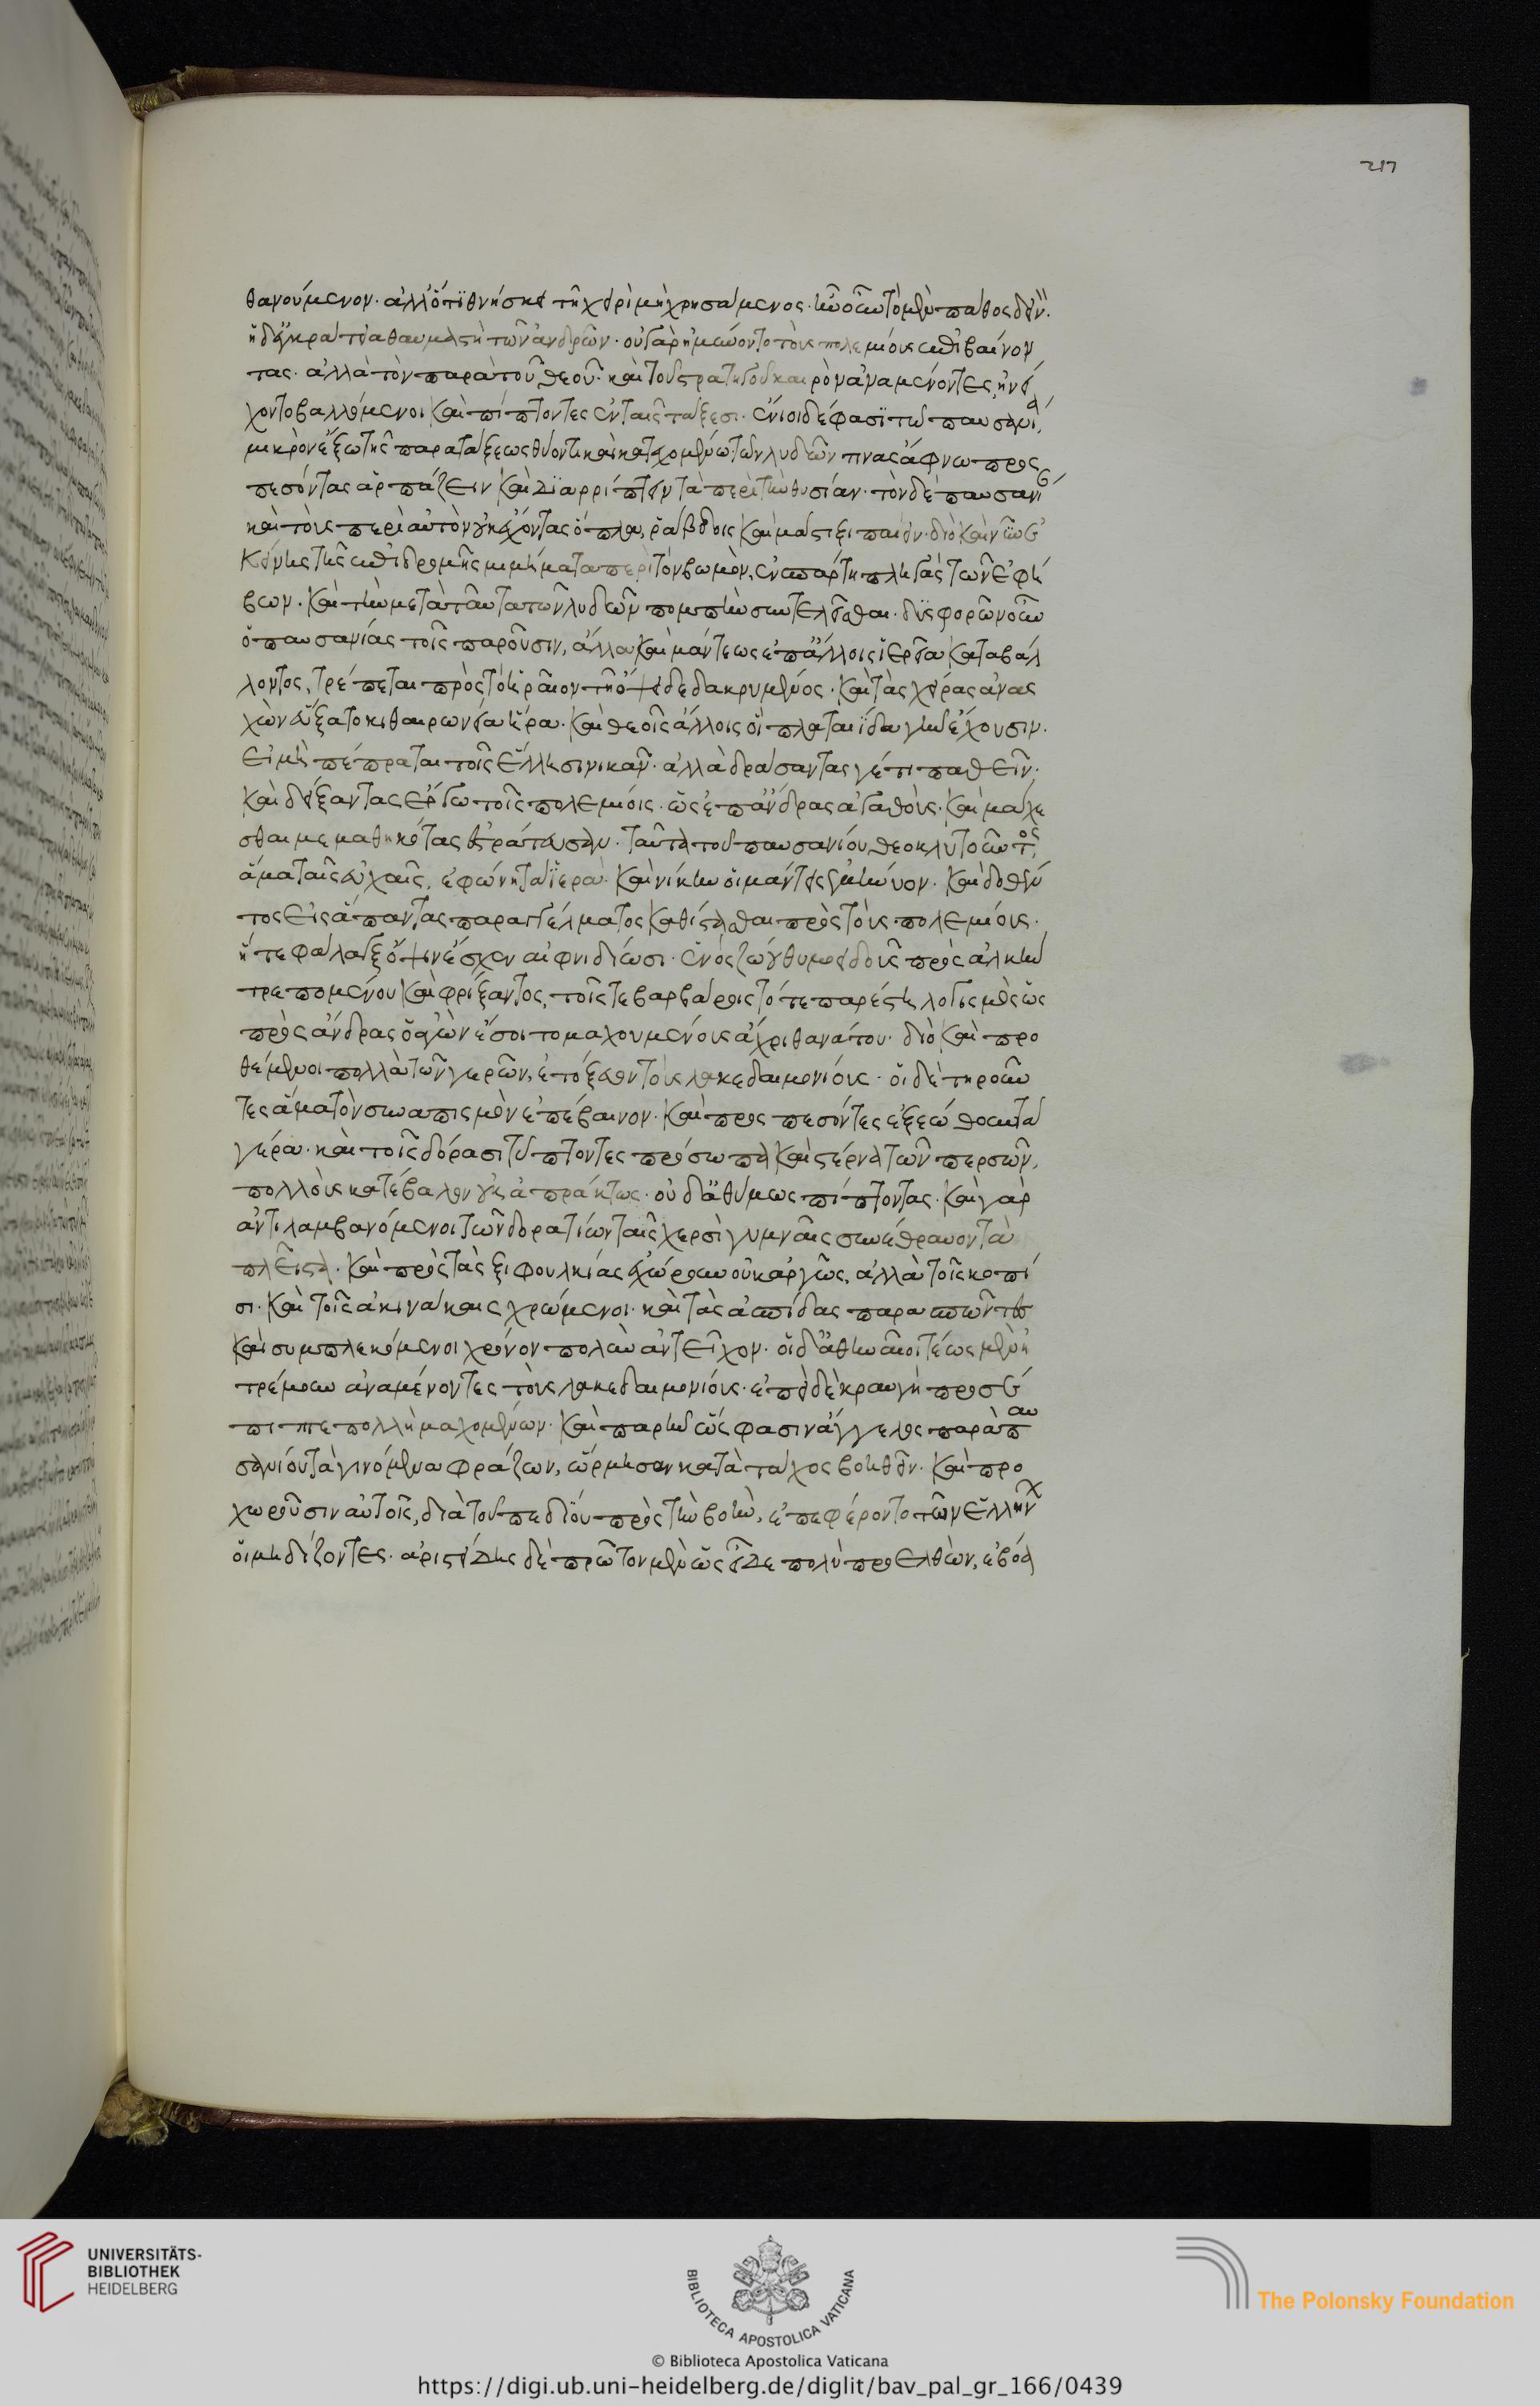 θανούμενον· ἀλλ' ὅτι θνήσκει τῆ χειρὶ μὴ χρησάμενος· ἦν οὖν τὸ μὲν πάθος δεινόν·
ἡ δ' ἐγκράτεια θαυμαστὴ τῶν ἀνδρῶν· οὐ γὰρ ἠμύνοντο τοὺς πολεμίους ἐπιβαίνον
τας· ἀλλὰ τὸν παρὰ τοῦ θεοῦ· καὶ τοῦ στρατηγοῦ καιρὸν ἀναμένοντες, ἠνεί
χοντο βαλλόμενοι καὶ πίπτοντες ἐν ταῖς τάξεσι· ἔνιοι δέ φασὶ τῶ παυσανία,
μικρὸν ἔξω τῆς παρατάξεως θύοντι καὶ κατευχομένω τῶν λυδῶν τινας ἄφνω προς
πεσόντας ἁρπάζειν καὶ διαρρίπτειν τὰ περὶ τὴν θυσίαν· τὸν δὲ παυσανίαν
καὶ τοὺς περὶ αὐτὸν οὐκ ἔχοντας ὅπλα, ῥάβδοις καὶ μάστιξι παίειν· διὸ καὶ νῦν ἐ
κείνης τῆς ἐπιδρομῆς μιμήματα περὶ τὸν βωμὸν, ἐν σπάρτη πληγὰς τῶν ἐφή
βων· καὶ τὴν μετὰ ταῦτα τῶν λυδῶν πομπὴν συντελεῖσθαι· δυσφορῶν οὖν
ὁ παυσανίας τοῖς παροῦσιν, ἄλλα καὶ μάντεως ἐπ' ἄλλοις ἱερεῖα καταβάλ
λοντος, τρέπεται πρὸς τὸ ἡραῖον τῆ ὄψει δεδακρυμένος· καὶ τὰς χεῖρας ἀνας
χὼν εὔξατο κιθαιρωνεία ἥρα· καὶ θεοῖς ἄλλοις οἳ πλαταιίδα γῆν ἔχουσιν·
εἰ μὴ πέπραται τοῖς ἕλλησι νικᾶν· ἀλλὰ δράσαντας γέ τι παθεῖν·
καὶ δείξαντας ἔργω τοῖς πολεμίοις· ὡς ἐπ' ἄνδρας ἀγαθοὺς· καὶ μάχε
σθαι μεμαθηκότας ἐστράτευσαν· ταῦτα τοῦ παυσανίου θεοκλυτοῦντος,
ἅμα ταῖς εὐχαῖς, ἐφώνη τὰ ἱερὰ· καὶ νίκην οἱ μάντεις ἔφραζον· καὶ δοθέν
τος εἰς ἅπαντας παραγγέλματος καθίστασθαι πρὸς τοὺς πολεμίους·
ἥ τε φάλαγξ ὄψιν ἔσχεν αἰφνιδίως· ἑνὸς ζώου θυμοειδοῦς πρὸς ἀλκὴν
τρεπομένου καὶ φρίξαντος, τοῖς τε βαρβάροις τότε παρέστη λογισμὸς ὡς
πρὸς ἄνδρας ὁ ἀγὼν ἔσοιτο μαχουμένους ἄχρι θανάτου· διὸ καὶ προ
θέμενοι πολλὰ τῶν γέρρων, ἐτόξευον τοὺς λακεδαιμονίους· οἱ δὲ τηροῦν
τες ἅμα τὸν συνασπισμὸν ἐπέβαινον· καὶ προς πεσόντες ἐξεώθουν τὰ
γέρρα· καὶ τοῖς δόρασι τύπτοντες πρόσωπα καὶ στέρνα τῶν περσῶν,
πολλοὺς κατέβαλον οὐκ ἀπράκτως· οὐδ' ἀθύμως πίπτοντας· καὶ γὰρ
ἀντιλαμβανόμενοι τῶν δορατίων ταῖς χερσὶ γυμναῖς συνέθραυον τὰ
πλεῖστα· καὶ πρὸς τὰς ξιφουλκίας ἐχώρουν οὐκ ἀργῶς, ἀλλὰ τοῖς κοπί
σι· καὶ τοῖς ἀκινάκαις χρώμενοι· καὶ τὰς ἀσπίδας παρασπῶντες
καὶ συμπλεκόμενοι χρόνον πολὺν ἀντεῖχον· οἱ δ' ἀθηναῖοι τέως μὲν ἠ
τρέμουν ἀναμένοντες τοὺς λακεδαιμονίους· ἐπεὶ δὲ κραυγὴ προσέ
πιπτε πολλὴ μαχομένων· καὶ παρῆν ὥς φασιν ἄγγελος παρὰ παυ
σανίου τὰ γινόμενα φράζων, ὥρμησαν κατὰ τάχος βοηθεῖν· καὶ προ
χωροῦσιν αὐτοῖς, διὰ τοῦ πεδίου πρὸς τὴν βοὴν, ἐπεφέροντο τῶν ἑλλήνων
οἱ μηδίζοντες· ἀριστείδης δὲ πρῶτον μὲν ὡς εἶδε πολὺ προελθὼν, ἐβόα
UNIVERSITÄTS-
BIBLIOTHEK
HEIDELBERG
BIBLIOTECA APOSTOLICA VATICANA
The Polonsky Foundation
© Biblioteca Apostolica Vaticana
https://digi.ub.uni-heidelberg.de/diglit/bav_pal_gr_166/0439